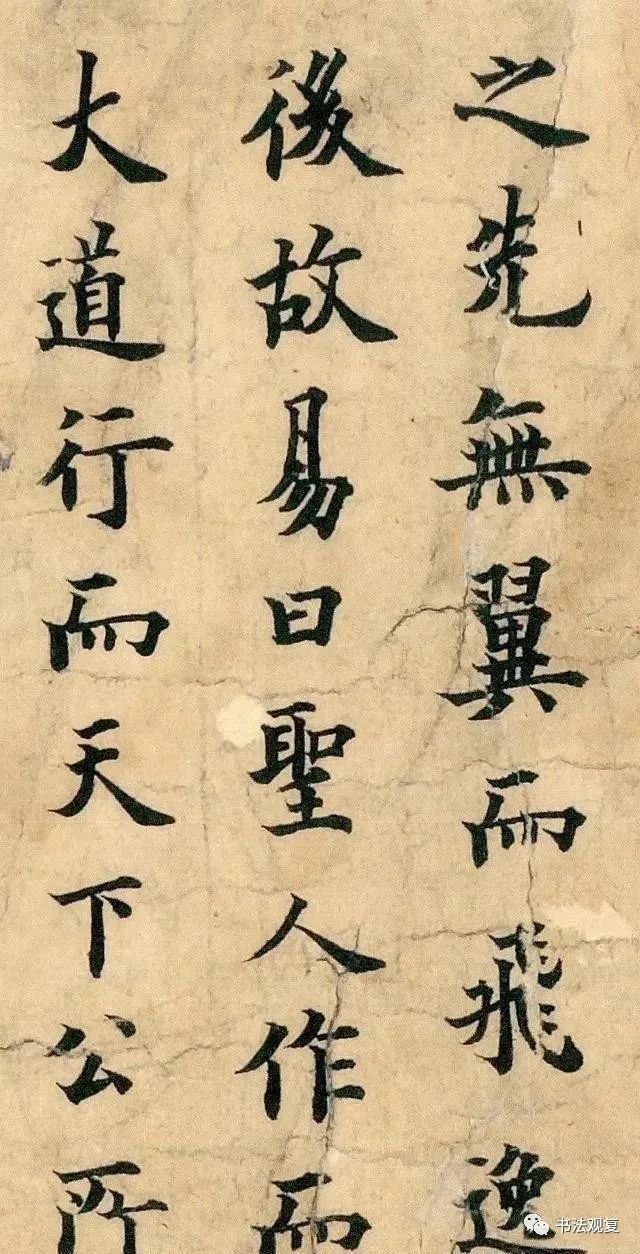 之先無翼而飛逸
後故易曰聖人作而
大道行而天下公所
书法观复